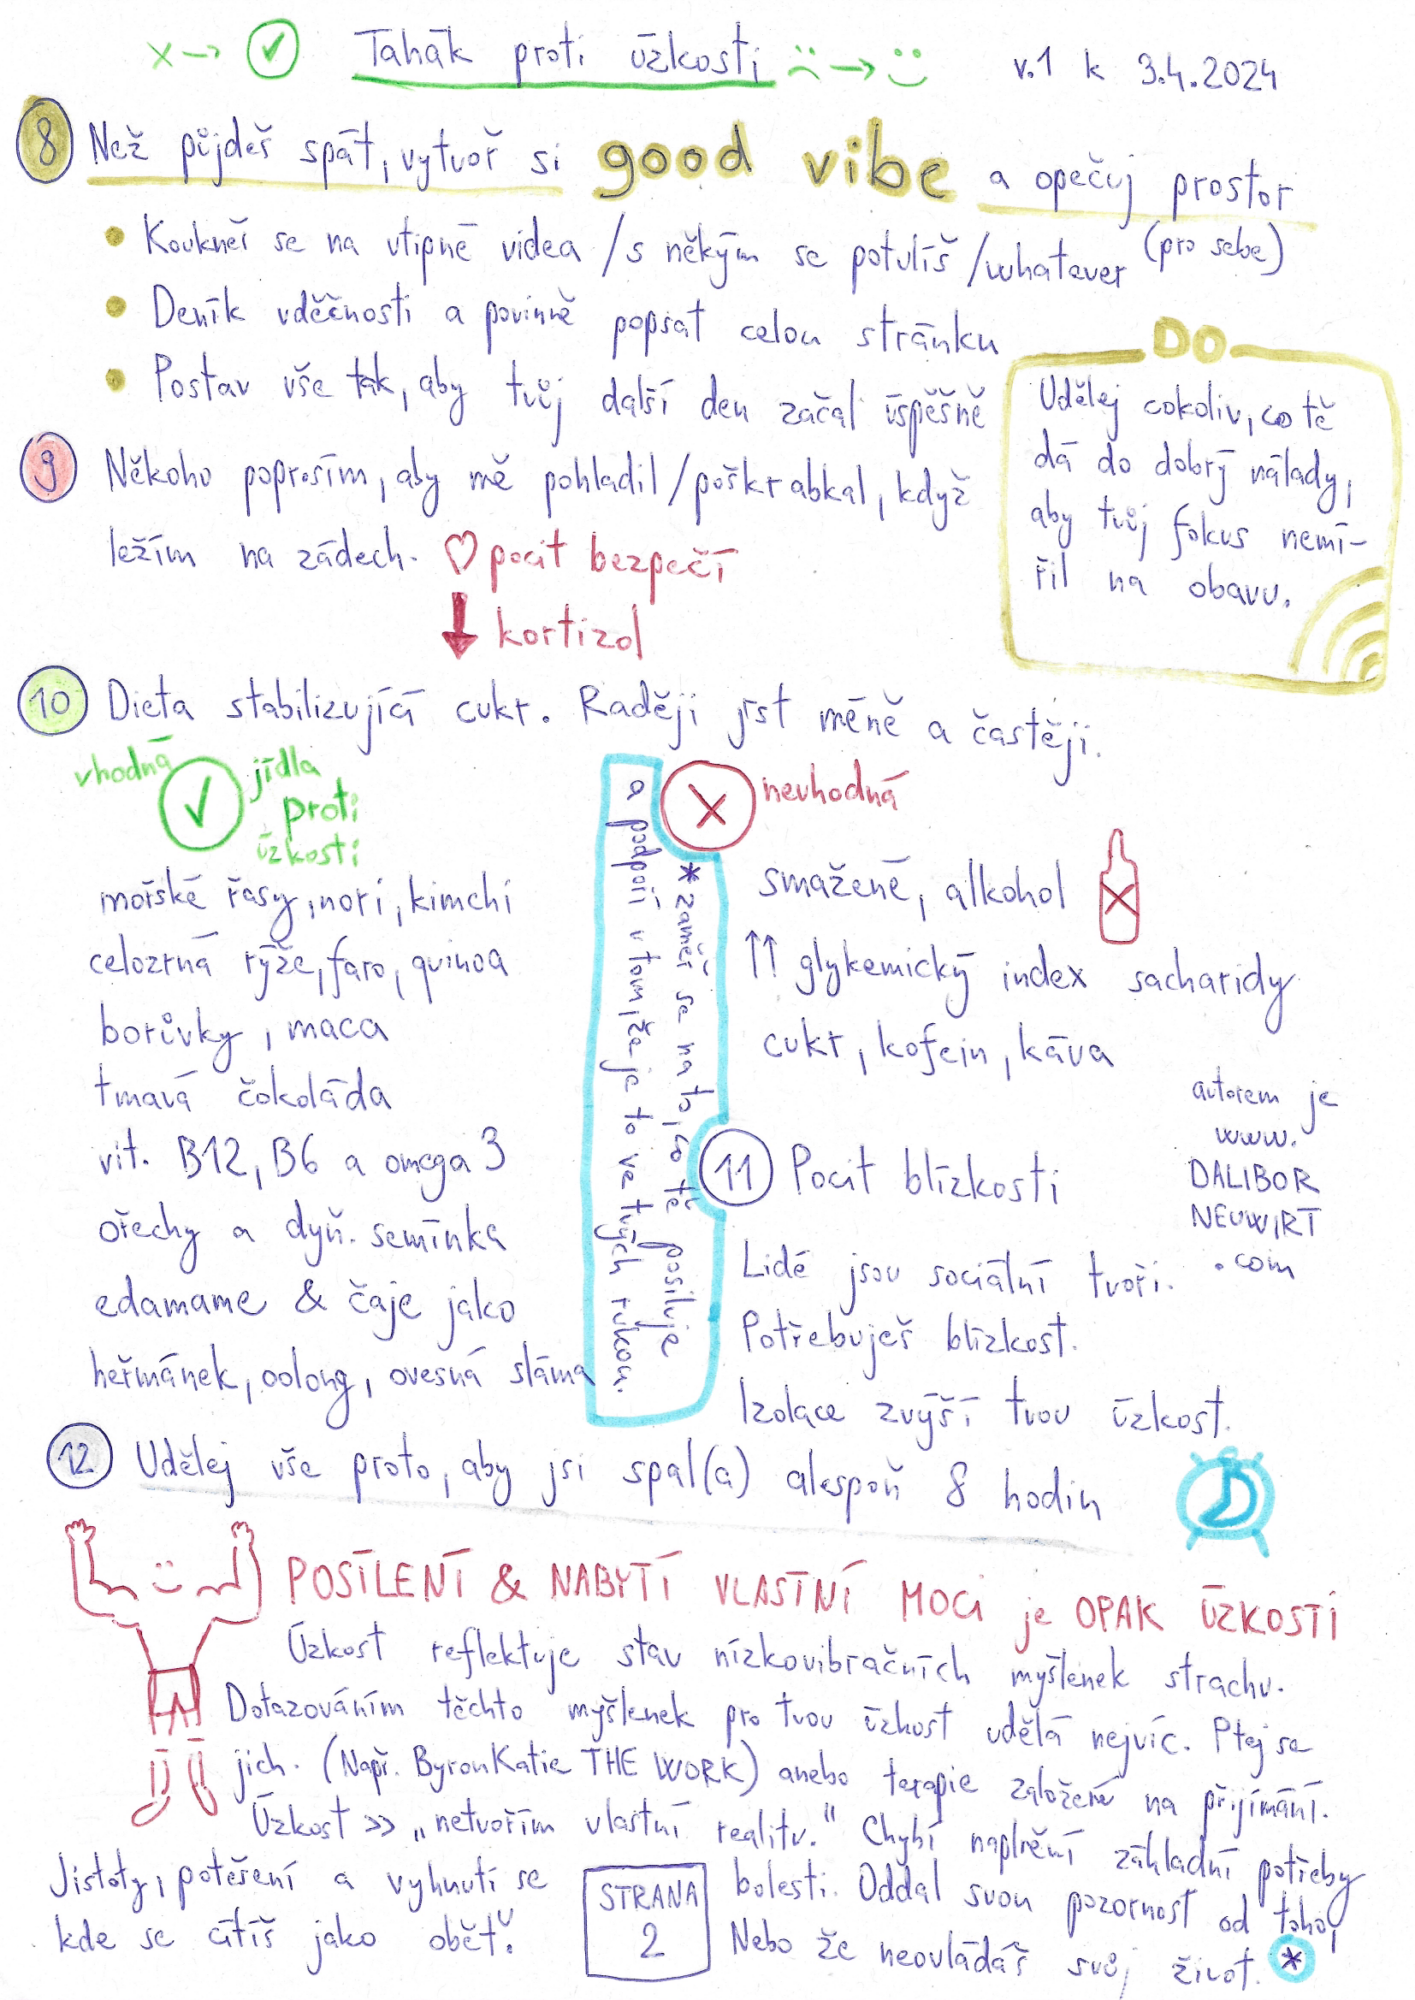 x → ✓ Tahák proti úzkosti :( → :) v.1 k 3.4.2024
8 Než půjdeš spát, vytvoř si good vibe a opečuj prostor
(pro sebe)
• Koukneš se na vtipné videa / s někým se potulíš / whatever
• Deník vděčnosti a povinně popsat celou stránku
• Postav vše tak, aby tvůj další den začal úspěšně
DO
Udělej cokoliv, co tě
dá do dobrý nálady,
aby tvůj fokus nemí-
řil na obavu.
9 Někoho poprosím, aby mě pohladil / poškrabkal, když
ležím na zádech. ♡ pocit bezpečí
↓ kortizol
10 Dieta stabilizující cukr. Raději jíst méně a častěji.
vhodná ✓ jídla
proti
úzkosti
mořské řasy, nori, kimchi
celozrná rýže, faro, quinoa
borůvky, maca
tmavá čokoláda
vit. B12, B6 a omega 3
ořechy a dyň. semínka
edamame & čaje jako
heřmánek, oolong, ovesná sláma
* zaměř se na to, co tě posiluje
a podpoří v tom, že je to ve tvých rukou.
x nevhodná
smažené, alkohol
↑↑ glykemický index sacharidy
cukr, kofein, káva
11 Pocit blízkosti
Lidé jsou sociální tvoři.
Potřebuješ blízkost.
Izolace zvýší tvou úzkost.
autorem je
www.
DALIBOR
NEUWIRT
.com
12 Udělej vše proto, aby jsi spal(a) alespoň 8 hodin
POSÍLENÍ & NABYTÍ VLASTNÍ MOCI je OPAK ÚZKOSTI
Úzkost reflektuje stav nízkovibračních myšlenek strachu.
Dotazováním těchto myšlenek pro tvou úzkost udělá nejvíc. Ptej se
jich. (Např. ByronKatie THE WORK) anebo terapie založené na přijímání.
Úzkost >> „netvořím vlastní realitu." Chybí naplnění základní potřeby
Jistoty, potěšení a vyhnutí se bolesti. Oddal svou pozornost od toho,
kde se cítíš jako oběť. Nebo že neovládáš svůj život. *
STRANA
2